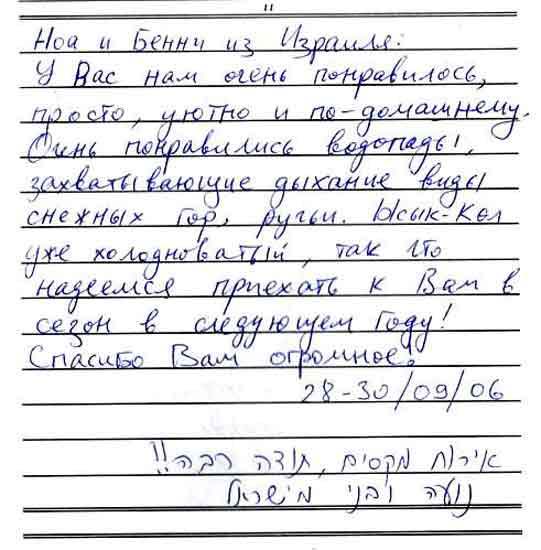 Ноа и Бенни из Израиля:
У Вас нам очень понравилось,
просто, уютно и по-домашнему.
Очень понравились водопады,
захватывающие дыхание виды
снежных гор, ручьи. Ысык-Кол
уже холодноватый, так что
надеемся приехать к Вам в
сезон в следующем году!
Спасибо Вам огромное!
28-30/09/06
אירוח מקסים, תודה רבה!!
נועה ובני מישראל